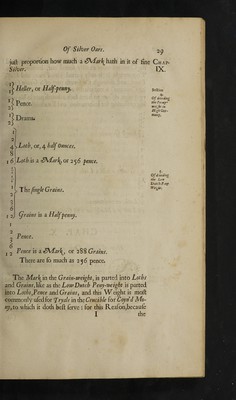 Of Silver Oars. 29
just proportion how much a Mark hath in it of fine CHAP.
Silver. IX.
Heller, or Half-penny.
Pence.
Drams.
1
2
4
8 Loth, or, 4 half Ounces.
16 Loth is a Mark, or 256 pence.
The single Grains.
12 Grains is a Half penny.
1
2
3
6 Pence.
8
12 Pence is a Mark, or 288 Grains.
There are so much as 256 pence.
The Mark in the Grain-weight, is parted into Lochs
and Grains, like as the Low Dutch Peny-weight is parted
into Lochs, Pence and Grains, and this Weight is most
commonly used for Tryals in the Crucible for Coyn'd Mo-
ny, to which it doth best serve: for this Reason, because
I the